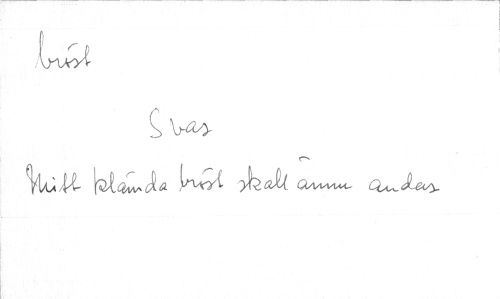 bröst
S vas
Mitt klämda bröst skall ännu andas